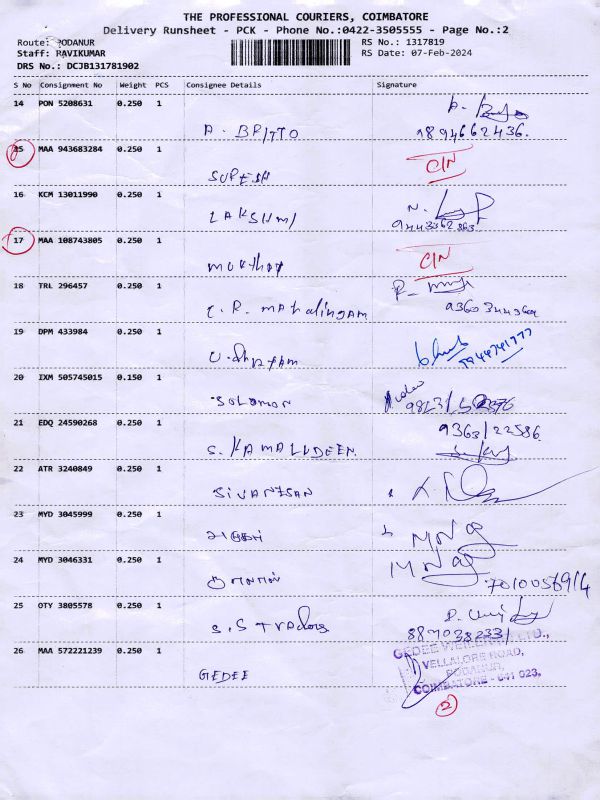 THE PROFESSIONAL COURIERS, COIMBATORE
Delivery Runsheet - PCK - Phone No.:0422-3505555 - Page No.:2
Route: PODANUR
RS No.: 1317819
Staff: RAVIKUMAR
RS Date: 07-Feb-2024
DRS No.: DCJB131781902
S No Consignment No Weight PCS Consignee Details Signature
14 PON 5208631 0.250 1
A. BRITTO 9894662436.
15 MAA 943683284 0.250 1
SURESH C/N
16 KCM 13011990 0.250 1
LAKSHMI 9443362863
17 MAA 108743805 0.250 1
C/N
18 TRL 296457 0.250 1
R. MAHALINGAM
19 DPM 433984 0.250 1
20 IXM 505745015 0.150 1
SOLOMON
21 EDQ 24590268 0.250 1
S. KAMALUDEEN 9363122586
22 ATR 3240849 0.250 1
SIVANESAN
23 MYD 3045999 0.250 1
24 MYD 3046331 0.250 1
25 OTY 3805578 0.250 1
8870382331
26 MAA 572221239 0.250 1
GEDEE
GEDEE LTD.,
VELLALORE ROAD,
PODANUR,
COIMBATORE - 641 023.
2